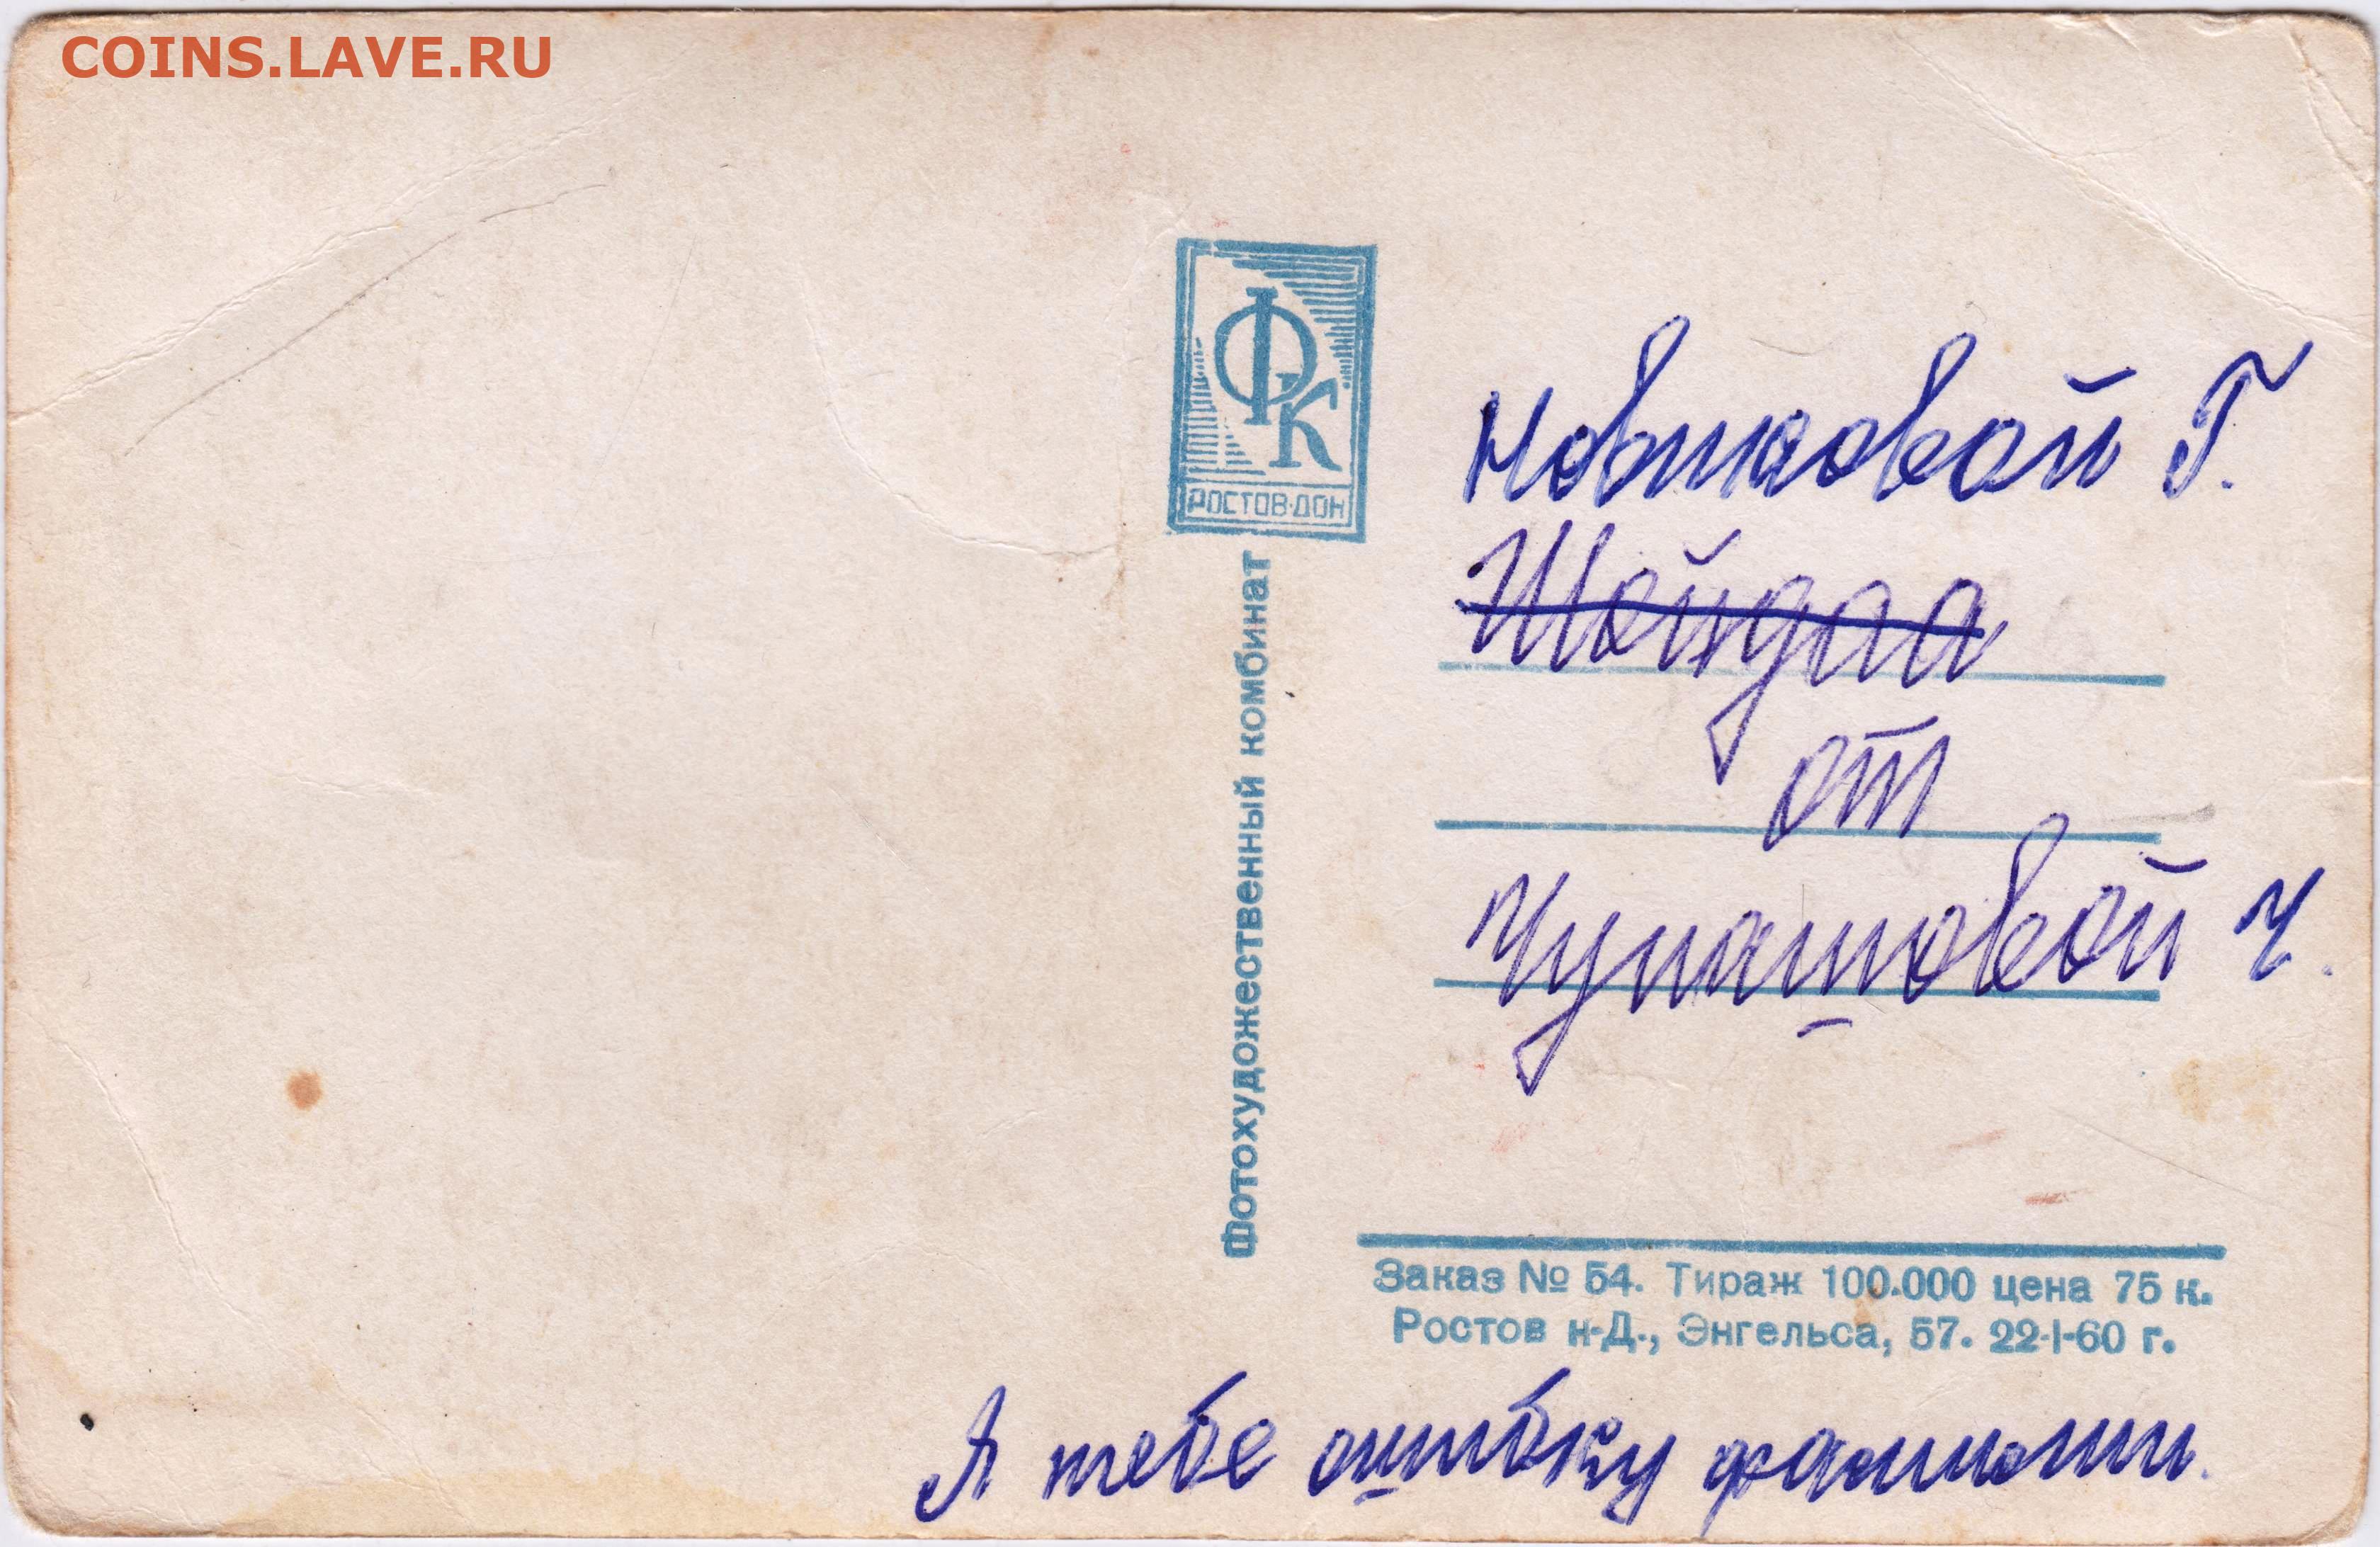 COINS.LAVE.RU
ФК
РОСТОВ-ДОН
Фотохудожественный комбинат
Новиковой Г.
от
Чупашовой Ч.
Заказ № 54. Тираж 100.000 цена 75 к.
Ростов н-Д., Энгельса, 57. 22-I-60 г.
Я тебе ошибку фамилии.